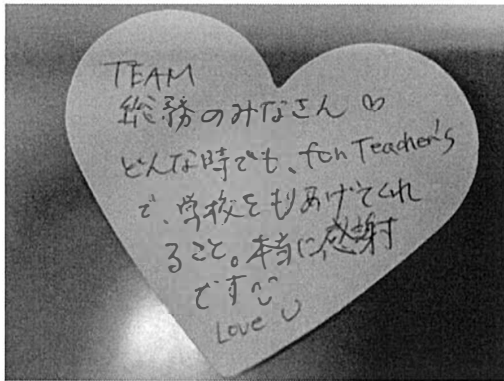 TEAM
総務のみなさん♡
どんな時でも、for Teacher's
で、学校をもりあげてくれ
ること。本当に感謝
です^^
Love U